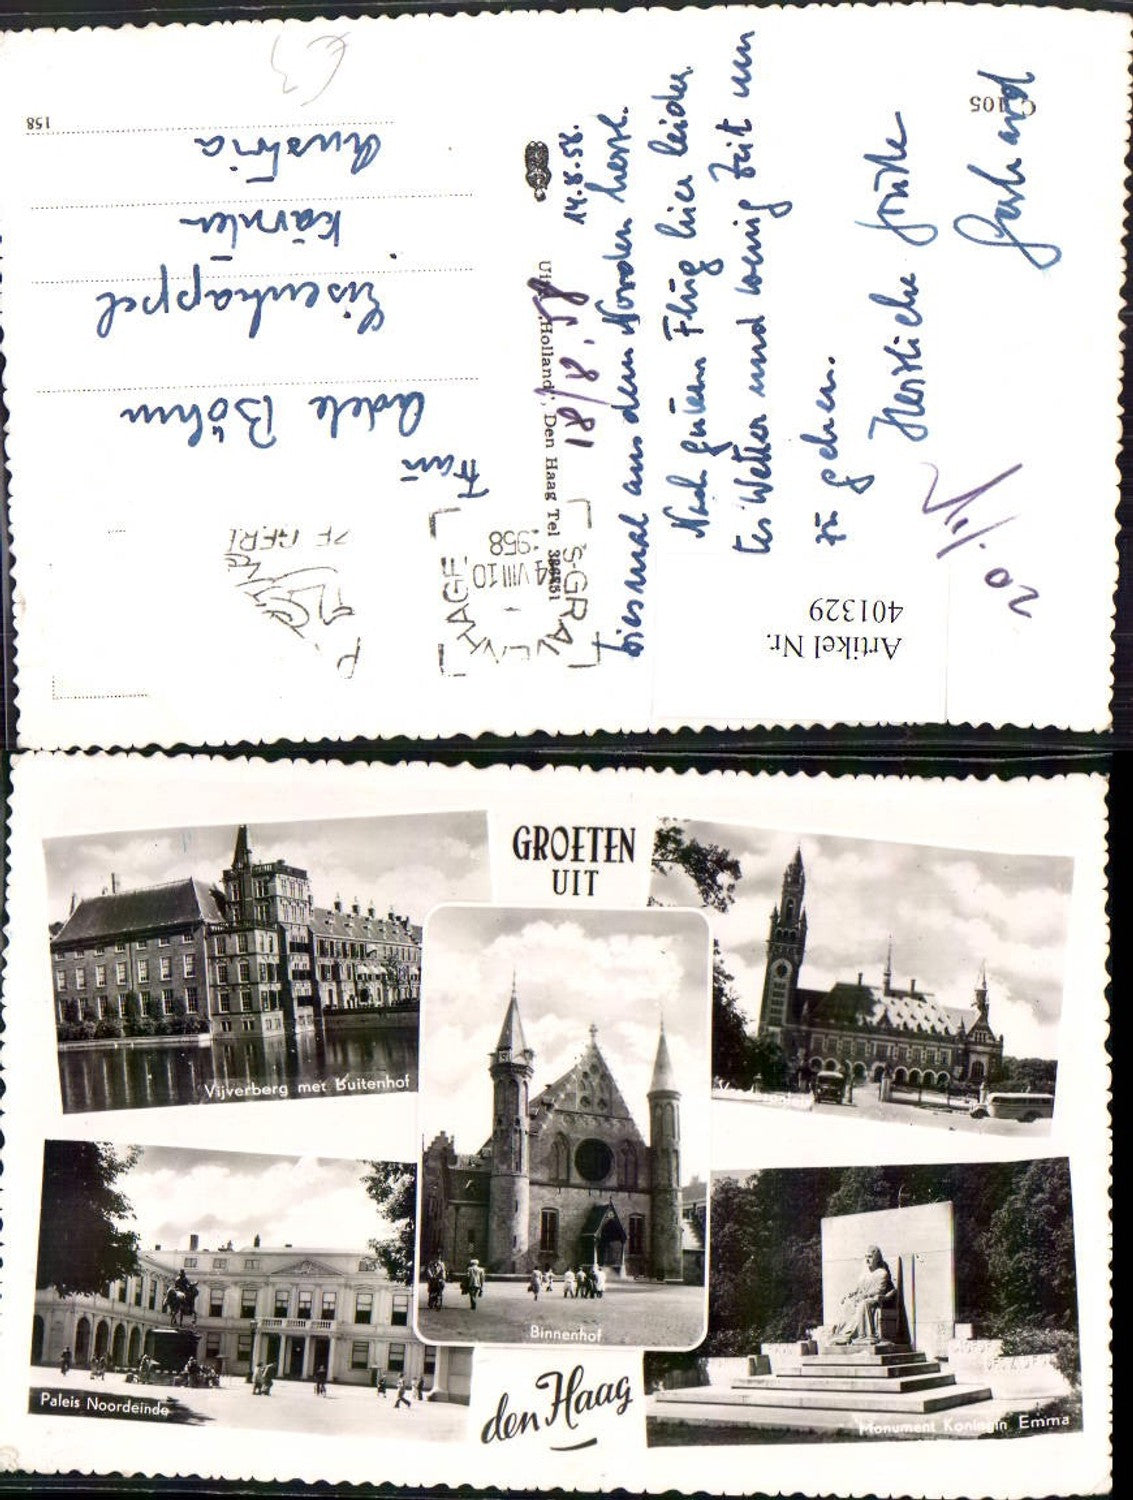 158
C 105
14.8.58.
Diesmal aus dem Norden herzl.
Nach gutem Flug hier leider
tes Wetter und wenig Zeit um
zu gehen.
Herzliche Grüße
Gerhard
Frau
Adele Böhm
Eisenkappel
Kärnten
Austria
Uitg. „Holland", Den Haag Tel
'S-GRAVENHAGE
4 VIII 10
1958
18/8.58
Artikel Nr.
401329
GROETEN
UIT
Vijverberg met Buitenhof
Binnenhof
Paleis Noordeinde
Monument Koningin Emma
den Haag